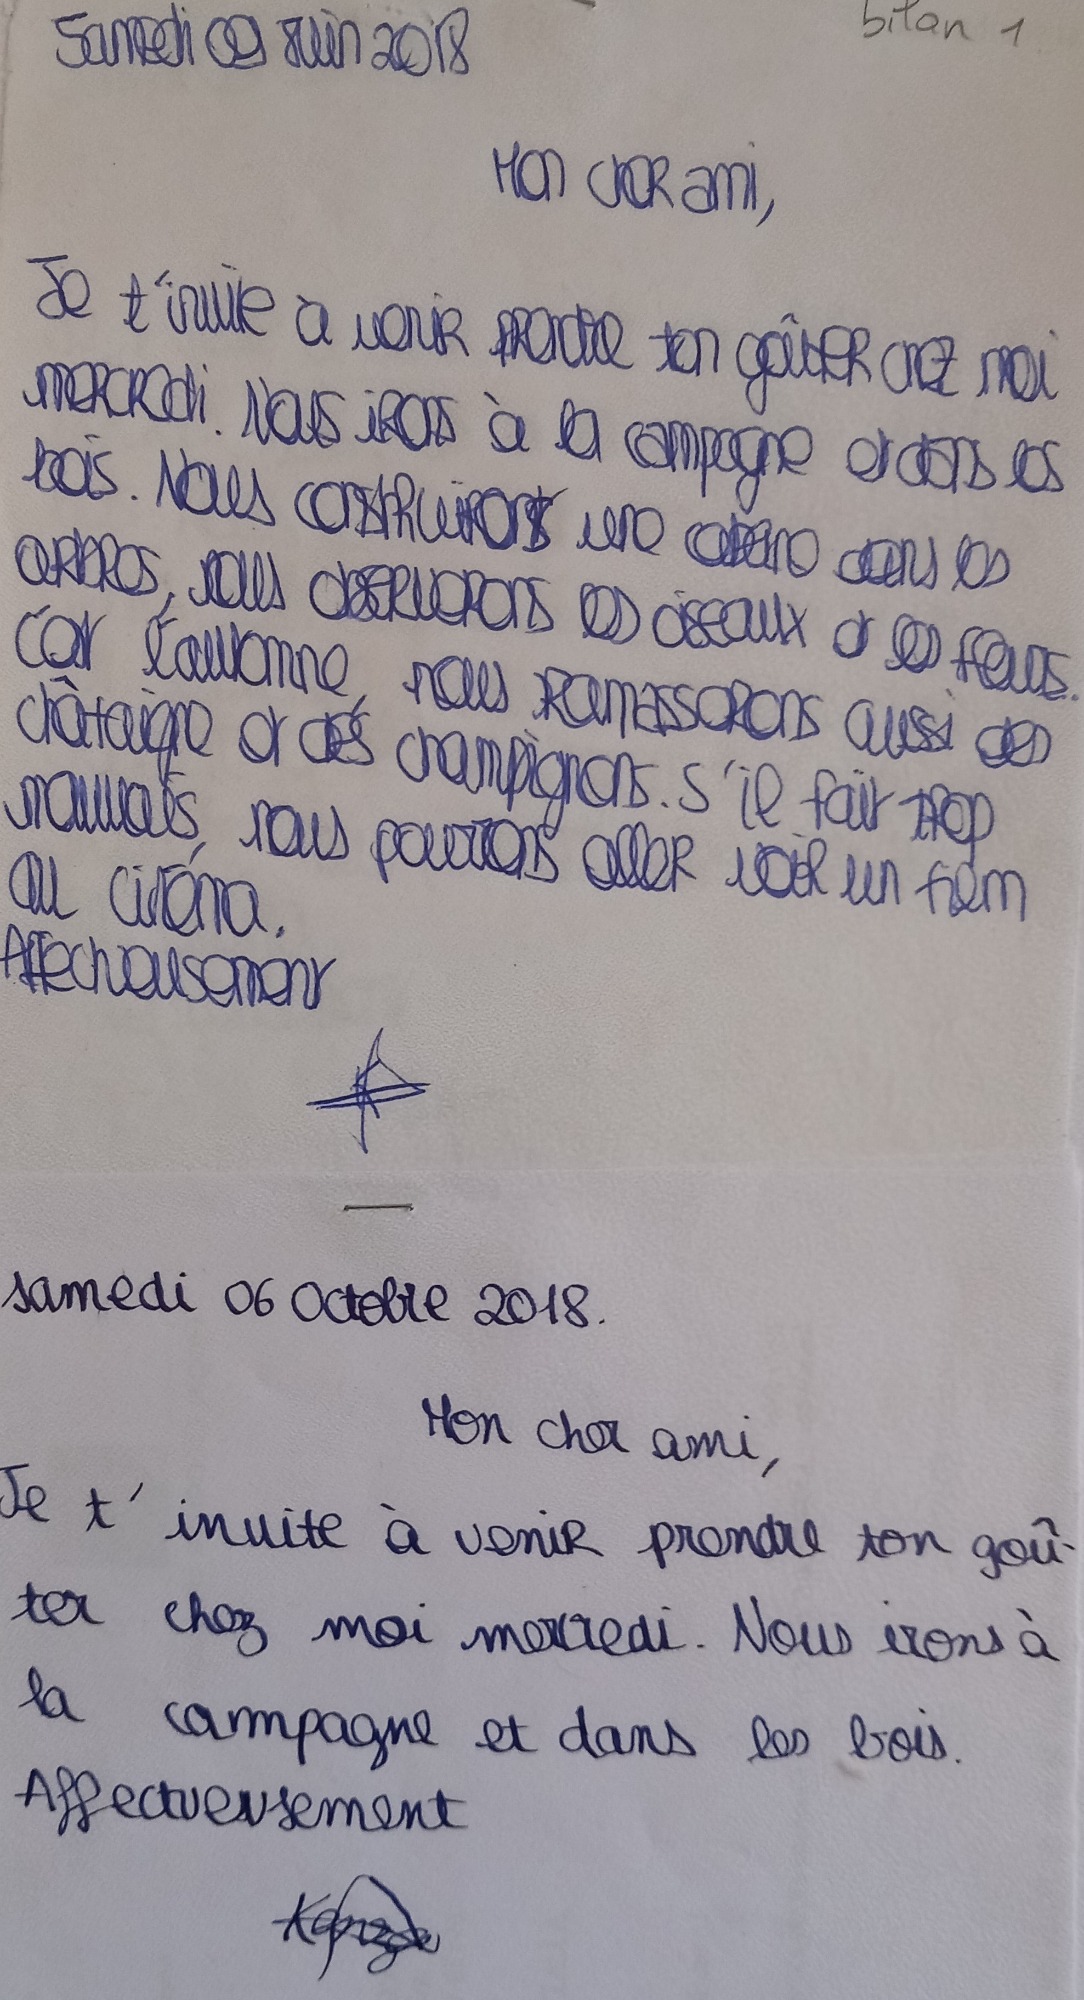 bilan 1
Samedi 09 Juin 2018
Mon cher ami,
Je t'invite à venir prendre ton goûter chez moi
mercredi. Nous irons à la campagne et dans les
bois. Nous construirons une cabane dans les
arbres, nous observerons les oiseaux et les fleurs.
Car l'automne, nous ramasserons aussi des
châtaigne et des champignons. S'il fait trop
mauvais, nous pourrons aller voir un film
au cinéma.
Affectueusement
samedi 06 Octobre 2018.
Mon cher ami,
Je t'invite à venir prendre ton goû-
ter chez moi mercredi. Nous irons à
la campagne et dans les bois.
Affectueusement